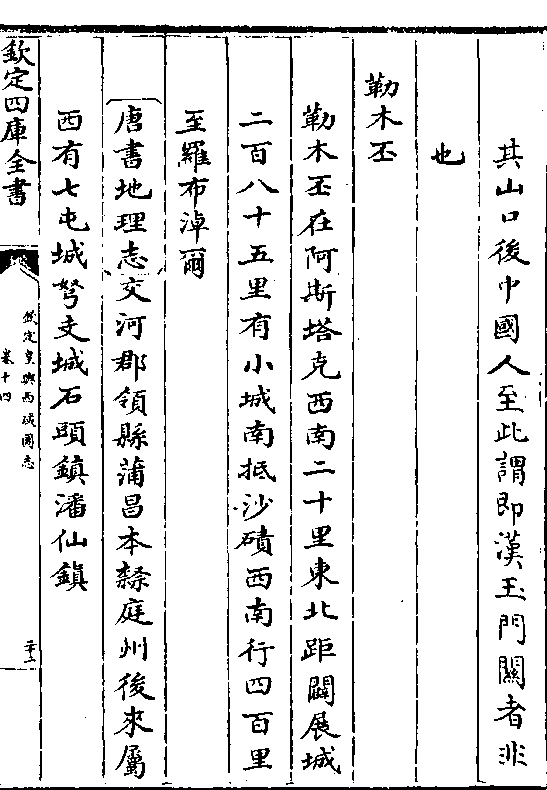 其山口後中國人至此謂即漢玉門關者非
也
勒木丕
勒木丕在阿斯塔克西南二十里東北距闢展城
二百八十五里有小城南抵沙磧西南行四百里
至羅布淖爾
唐書地理志交河郡領縣蒲昌本隸庭州後來屬
西有七屯城弩支城石頭鎮潘仙鎮
欽定四庫全書
欽定皇輿西域圖志
卷十四
二十二